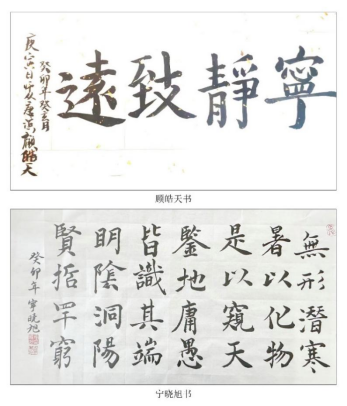 寧靜致遠
癸卯年癸亥月
庚寅日
顾皓天书
無形潛寒
暑以化物
是以窺天
鑒地庸愚
皆識其端
明陰洞陽
賢哲罕窮
癸卯年 寧曉旭
宁晓旭书